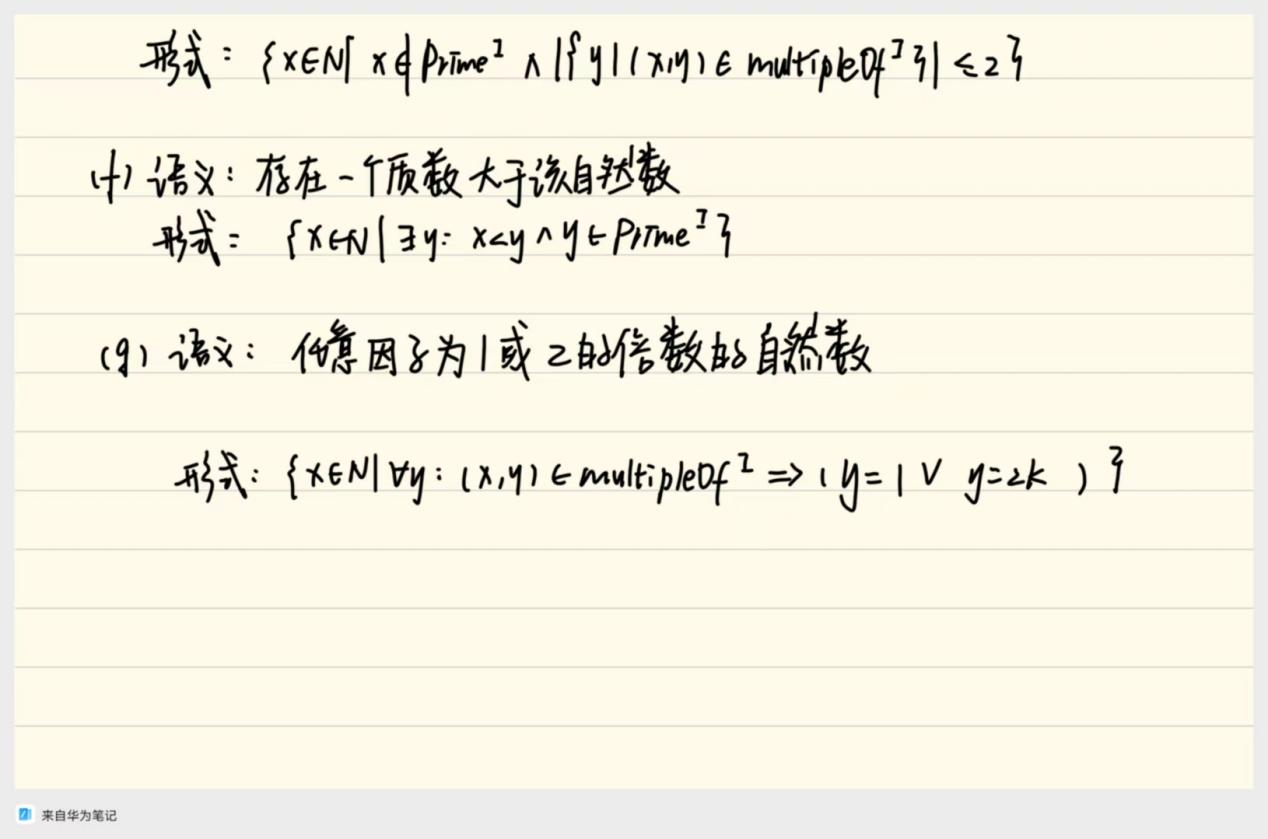 形式：{x∈N| x∉Prime^I ∧ |{y|(x,y)∈multipleOf^I}| ≤2}
(f) 语义：存在一个质数大于该自然数
形式： {x∈N|∃y: x<y ∧ y∈Prime^I}
(g) 语义： 任意因子为1或2的倍数的自然数
形式：{x∈N|∀y:(x,y)∈multipleOf^I ⇒(y=1 ∨ y=2k )}
来自华为笔记